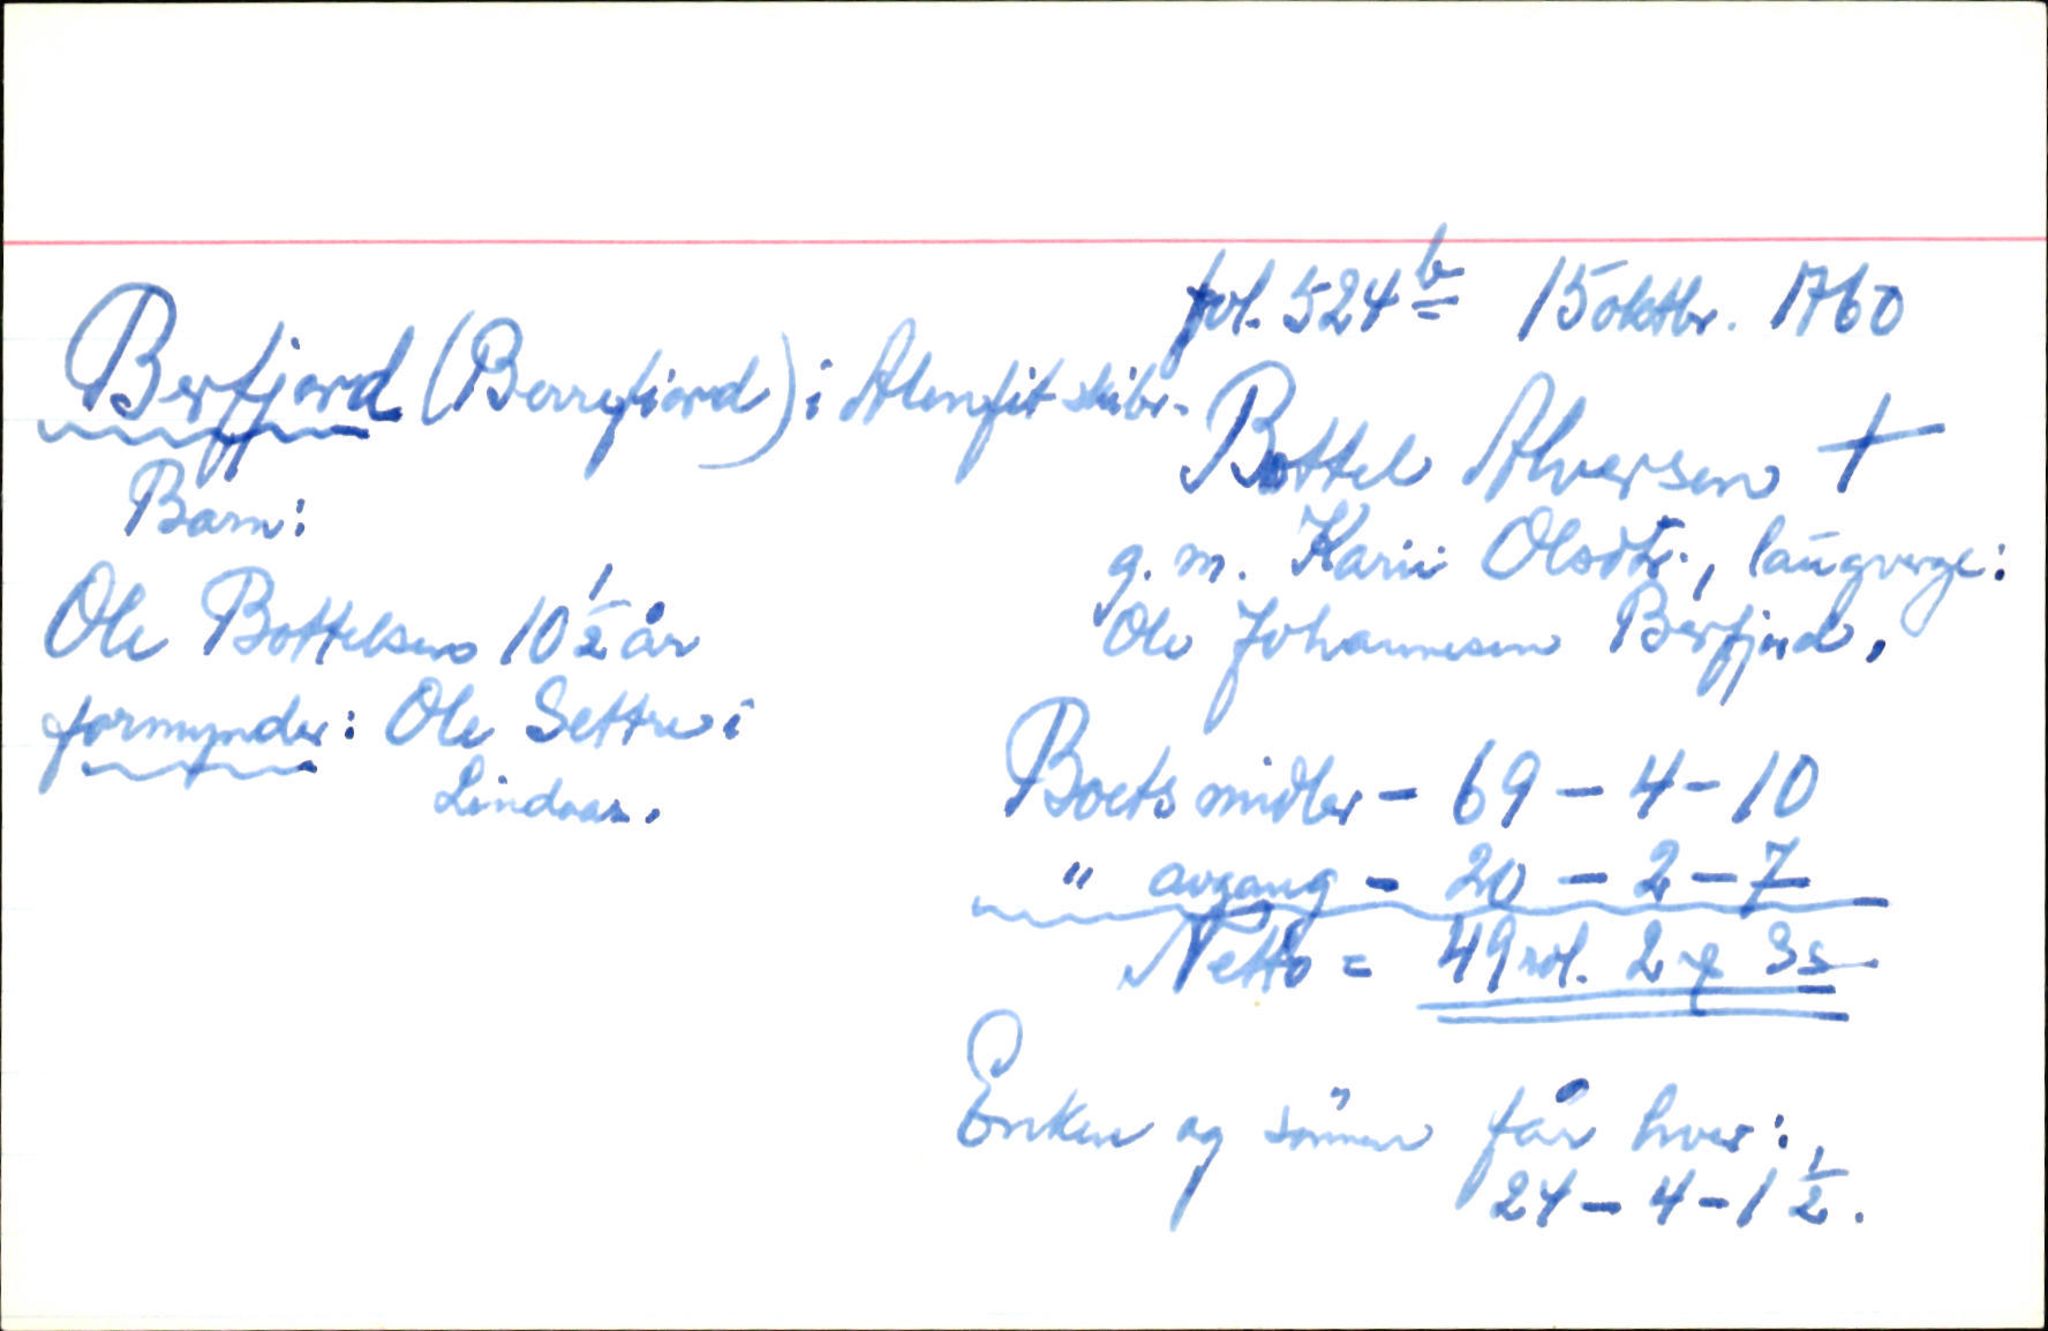 fol. 524 b 15 oktbr. 1760
Berfjord (Berrefiord) i Alenfit skibr.
Bottel Alversen †
Barn:
g. m. Kari Olsdtr., laugverge:
Ole Johannesen Berfjord.
Ole Bottelsen 10 1/2 år
formynder: Ole Settre i
Lindaas.
Boets midler - 69 - 4 - 10
" avgang - 20 - 2 - 7
Netto = 49 rdl. 2 ȹ 3 s
Enken og sønnen får hver:
24 - 4 - 1 1/2.